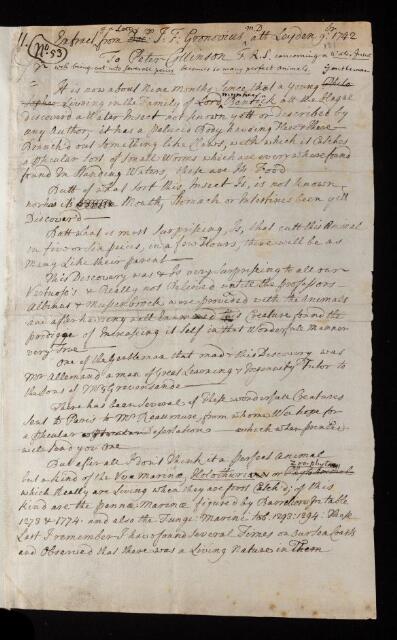 11.
No 53
Extract from a Letter J: F: Gronovius M:D att Leyden 9br 1742
To Peter Collinson F:R:S. concerning a Water Insect
which being cut into severall pieces becomes so many perfect Animals.
It is now about Nine Months Since that a young Gentleman
Living in the Family of Lord Bentick att the Hague
Discover'd a Water Insect not known yett or described by
any Author. it has a Body haveing
Branch'd out Something like Claws, with which it Catches
a Small Worms which are every where found
found In Standing Waters, these are its Food
Butt of what Sort this Insect Is, is not known
nor has its Mouth, Stomach or Intestines been yett
Discover'd
Butt what is most Surprising Is, that cutt this Animal
in five or Six pieces, in a few Hours, there will be as
Many Like their parent
This Discovery was & Is very Surprising to all our
Virtuoso's & Really not believed untill the professors
Albinus & Musenbrock were provided with the Animals
and after having found the
of Increasing it Self in that Wonderfule Manner
very True
One of the Gentleman that made this Discovery was
Mr Allemand a man of Great Learning & Ingenuity Tutor to
the Sons of Mr SGravesande
There has been Several of these wonderfull Creatures
Sent to Paris to Mr Reaumure, from whom We hope for
a which when printed
wile send you One
But after all I don't think it a perfect Animal
but a kind of the Uva marina, Holothurium or Zoophyton
which Really are living when they are first Catch'd; of this
kind are the pennæ Marinæ figured by Barrelier In table
1273 & 1774. and also the Fungi Marini tab: 1293: 1294: These
Last I remember I have found Several Times on our Sea Coasts
and Observed that there was a Living Nature in Them